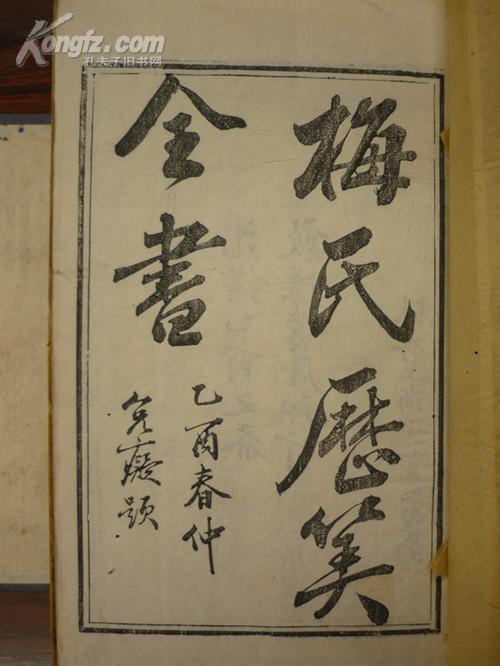 Kongfz.com
孔夫子旧书网
梅氏歴筭
全書
乙酉春仲
癡題